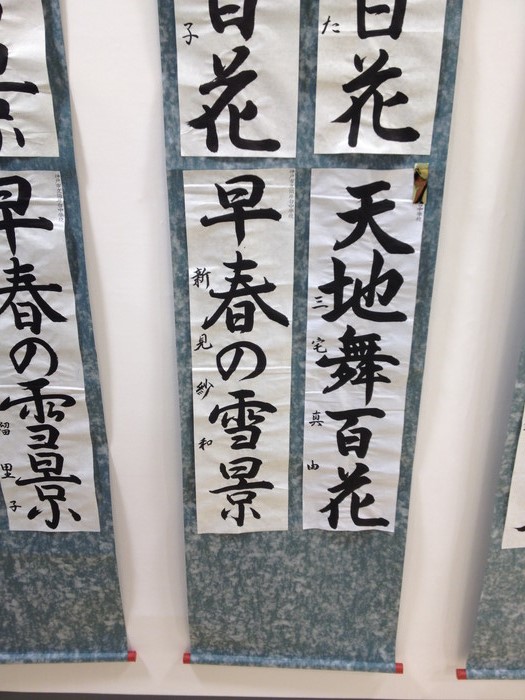 た
百花
子
百花
景
天地舞百花
三宅真由
早春の雪景
新見紗和
早春の雪景
留里子